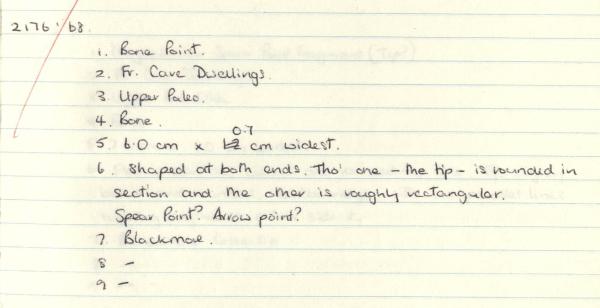 2176 : 63.
1. Bone Point.
2. Fr. Cave Dwellings.
3. Upper Paleo.
4. Bone.
0.7
5. 6.0 cm x 1.2 cm widest.
6. Shaped at both ends. Tho' one - the tip - is rounded in
section and the other is roughly rectangular.
Spear Point? Arrow point?
7. Blackmore.
8 -
9 -